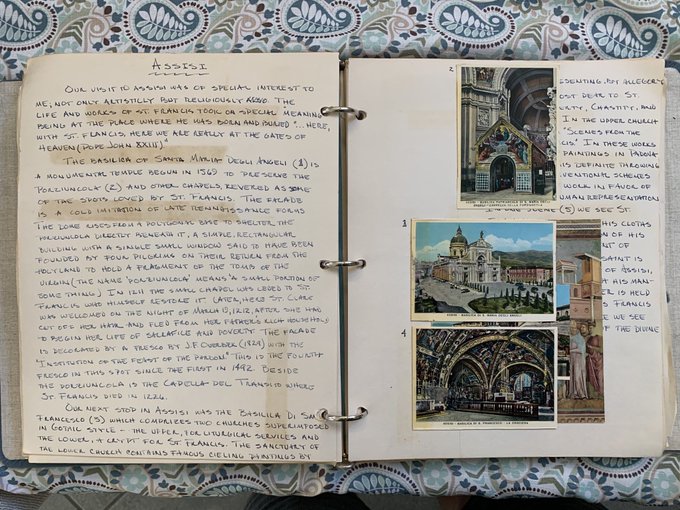 ASSISI
OUR VISIT TO ASSISI WAS OF SPECIAL INTEREST TO
ME, NOT ONLY ARTISTICLY BUT RELIGIOUSLY ALSO. THE
LIFE AND WORKS OF ST. FRANCIS TOOK ON SPECIAL MEANING
BEING AT THE PLACE WHERE HE WAS BORN AND BURIED "... HERE,
WITH ST. FRANCIS, HERE WE ARE REALLY AT THE GATES OF
HEAVEN (POPE JOHN XXIII)"
THE BASILICA OF SANTA MARIA DEGLI ANGELI (1) IS
A MONUMENTAL TEMPLE BEGUN IN 1569 TO PRESERVE THE
PORZIUNCOLA (2) AND OTHER CHAPELS, REVERED AS SOME
OF THE SPOTS LOVED BY ST. FRANCIS. THE FACADE
IS A COLD IMITATION OF LATE RENNAISSANCE FORMS
THE DOME RISES FROM A POLYGONAL BASE TO SHELTER THE
PORZIUNCOLA DIRECTLY BENEATH IT, A SIMPLE, RECTANGULAR
BUILDING WITH A SINGLE SMALL WINDOW SAID TO HAVE BEEN
FOUNDED BY FOUR PILGRIMS ON THEIR RETURN FROM THE
HOLYLAND TO HOLD A FRAGMENT OF THE TOMB OF THE
VIRGIN (THE NAME 'PORZIUNCOLA' MEANS "A SMALL PORTION OF
SOME THING) IN 1211 THE SMALL CHAPEL WAS CEDED TO ST.
FRANCIS WHO HIMSELF RESTORE IT LATER, HERE ST. CLARE
WAS WELCOMED ON THE NIGHT OF MARCH 1212, AFTER SHE HAD
CUT OFF HER HAIR AND FLED FROM HER FATHER'S RICH HOUSEHOLD
TO BEGIN HER LIFE OF SACRAFICE AND POVERTY THE FACADE
IS DECORATED BY A FRESCO BY J.F. OVERBECK (1829) WITH THE
"INSTITUTION OF THE FEAST OF THE PARDON" THIS IS THE FOURTH
FRESCO IN THIS SPOT SINCE THE FIRST IN 1492. BESIDE
THE PORZIUNCOLA IS THE CAPELLA DEL TRANSITO WHERE
ST FRANCIS DIED IN 1226.
OUR NEXT STOP IN ASSISI WAS THE BASILICA DI SAN
FRANCESCO (3) WHICH COMPRIZES TWO CHURCHES SUPERIMPOSED
IN GOTHIC STYLE - THE UPPER, FOR LITURGICAL SERVICES AND
THE LOWER, A CRYPT FOR ST. FRANCIS. THE SANCTUARY OF
THE LOWER CHURCH CONTAINS FAMOUS CIELING PAINTINGS BY
2
ESENTING, BUT ALLEGERY
OST DEAR TO ST.
ERTY, CHASTITY, AND
IN THE UPPER CHURCH
"SCENES FROM THE
CIS." IN THESE WORKS
PAINTINGS IN PADOVA
IS DEFINITE THROWING
VENTIONAL SCHEMES
WORK IN FAVOR OF
UMAN REPRESENTATION
IN ONE SCENE (5) WE SEE ST.
HIS CLOTHS
N OF HIS
NT OF
SAINT IS
OF ASSISI,
H HIS MAN-
ER IS HELD
S FRANCIS
E WE SEE
OF THE DIVINE
1
ASSISI - BASILICA DI S. MARIA DEGLI ANGELI
4
ASSISI - BASILICA DI S. FRANCESCO - LA CROCIERA